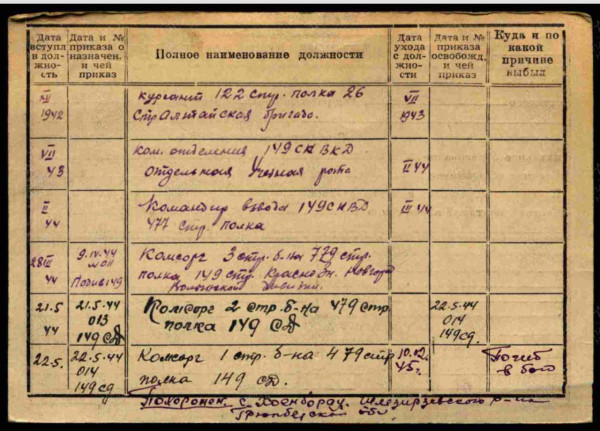 Дата вступл. в долж-ность
Дата и № приказа о назначен. и чей приказ
Полное наименование должности
Дата ухода с долж-ности
Дата и № приказа освобожд. и чей приказ
Куда и по какой причине выбыл
XII 1942
курсант 122 стр. полка 26
стр Алтайская бригада.
VII 1943
VII 43
ком. отделения 149 СК
отдельная Учебная рота
II 44
II 44
Командир взвода 149
477 стр. полка
III 44
28 III 44
9.IV.44
149
Комсорг 3 стр. б-на 779 стр.
полка 149 стр. Новгород
21.5 44
21.5.44 013 149 СД
Комсорг 2 стр. б-на 479 стр
полка 149 СД
22.5.44 014 149 сд.
22.5.
22.5.44 014 149 сд
Комсорг 1 стр б-на 479 стр
полка 149 сд.
10.02. 45 г.
Погиб в бою
Похоронен с. Хоенборау